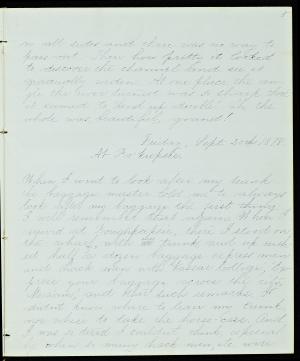 on all sides and there was no way to
pass out. Then how pretty it looked
to discover the channel and see it
gradually widen. At one place the an-
gle the river turned was so sharp that
it seemed to bend up double. Ah the
whole was beautiful, grand!
Friday, Sept. 20th 1878.
At Po'keepsie.
When I went to look after my trunk
the baggage master told me to always
look after my baggage the first thing
I will remember that again. When I
arrived at Poughkeepsie, there I stood on
the wharf, with the trunk and up rush-
ed half a dozen baggage express men
and hack men with Vassar College, Ex-
press your baggage across the city
Ma'am, and other such remarks. I
didn't know where to leave my trunk
nor where to take the horse-cars. And
I was so tired I couldn't think especial-
ly when so many hack men, etc. were